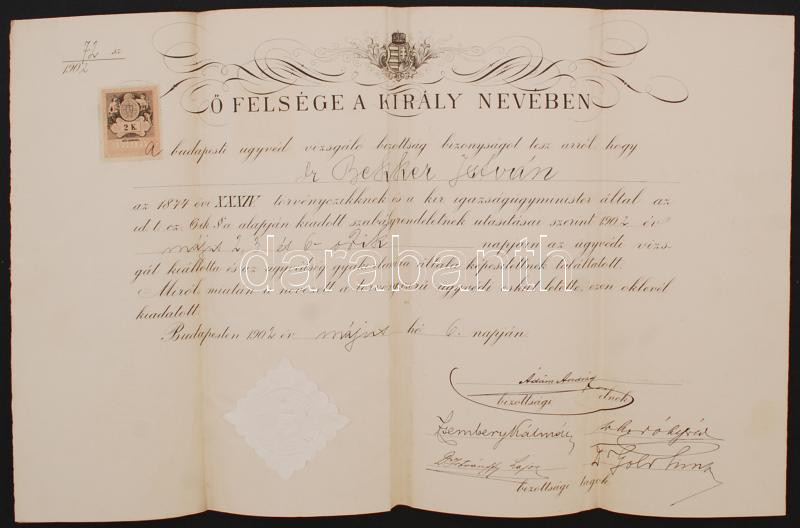 72 sz
1902
Ő FELSÉGE A KIRÁLY NEVÉBEN
2 K.
A budapesti ügyvéd vizsgáló bizottság bizonyságot tesz arról hogy
dr Bekker István
az 1874 évi XXXIV törvényczikknek és a kir igazságügyminister által az
id. t. cz. 6ik §a alapján kiadott szabályrendeletnek utasításai szerint 1902 év
május 2, 3 és 6-odik napján az ügyvédi vizs-
gát kiállotta és az ügyvédség gyakorlatára általa képesítettnek találtatott.
Miről, miután a nevezett a törvényszerű ügyvédi esküt letette, ezen oklevél
kiadatott.
Budapesten 1902 év május hó 6. napján
darabanth
Ádám András
bizottsági elnök
Zsembery Kálmán
Dr Lajos
bizottsági tagok